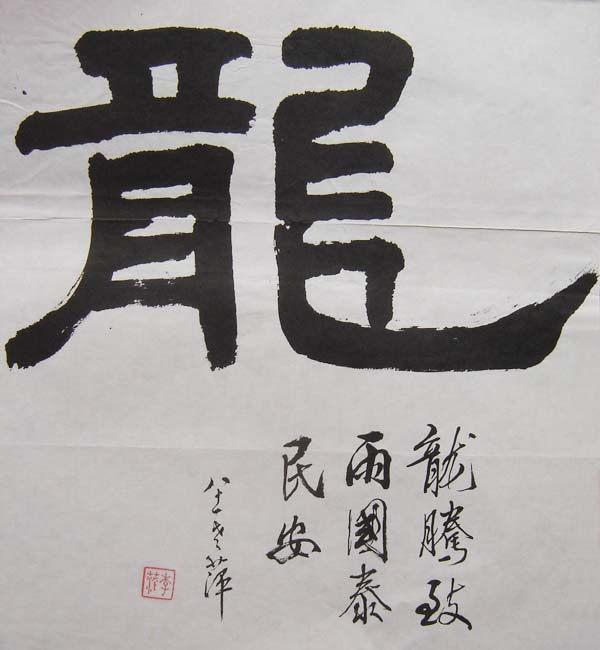 龍
龍騰致
雨國泰
民安
八十一
李